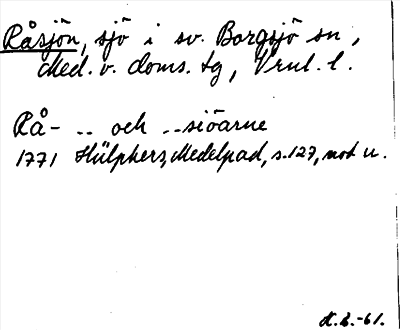 Råsjön, sjö i sv. Borgsjö sn,
Med. v. doms. tg, Vrnl. l.
Rå- .. och ..siöarne
1771 Hülphers, Medelpad, s. 127, not u.